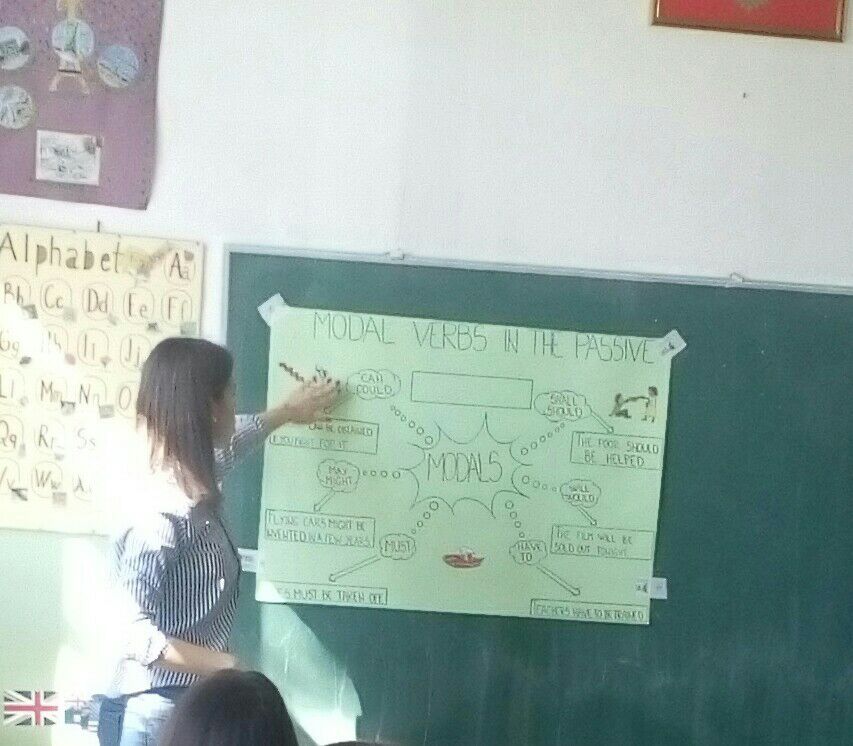 Alphabet Aa
Bb Cc Dd Ee Ff
Gg Hh Ii Jj
Ll Mm Nn O
Qq Rr Ss
Vv Ww
MODAL VERBS IN THE PASSIVE
CAN
COULD
BE OBTAINED
IF YOU FOR IT
SHALL
SHOULD
THE POOR SHOULD
BE HELPED
MODALS
MAY
MIGHT
FLYING CARS MIGHT BE
INVENTED IN A FEW YEARS
WILL
WOULD
THE FILM WILL BE
SOLD OUT TONIGHT
MUST
MUST BE TAKEN OFF
HAVE
TO
TEACHERS HAVE TO BE TRAINED